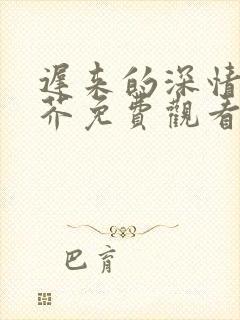 遲来的深情
芥免費觀看
巴育